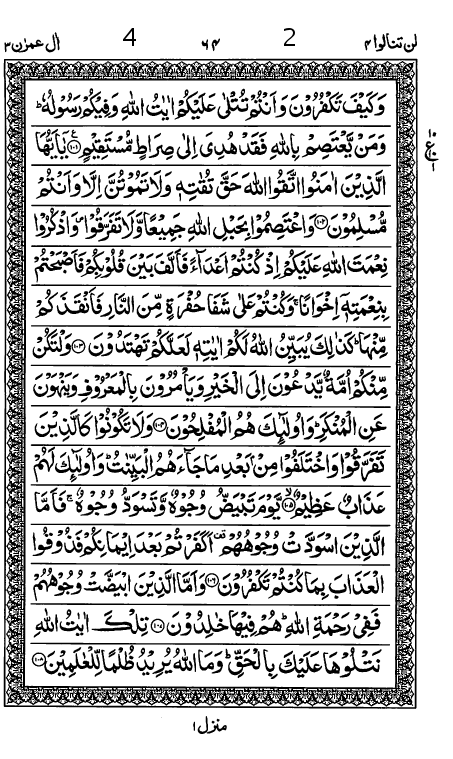 لن تنالوا ۴ 2 ۶۴ 4 اٰل عمرٰن ۳
وَكَيْفَ تَكْفُرُوْنَ وَاَنْتُمْ تُتْلٰى عَلَيْكُمْ اٰيٰتُ اللّٰهِ وَفِيْكُمْ رَسُوْلُهٗ ؕ
وَمَنْ يَّعْتَصِمْ بِاللّٰهِ فَقَدْ هُدِىَ اِلٰى صِرَاطٍ مُّسْتَقِيْمٍ ۧ﴿۱۰۱﴾ يٰۤاَيُّهَا
الَّذِيْنَ اٰمَنُوا اتَّقُوا اللّٰهَ حَقَّ تُقٰتِهٖ وَلَا تَمُوْتُنَّ اِلَّا وَاَنْتُمْ
مُّسْلِمُوْنَ ﴿۱۰۲﴾ وَاعْتَصِمُوْا بِحَبْلِ اللّٰهِ جَمِيْعًا وَّلَا تَفَرَّقُوْا ۪ وَاذْكُرُوْا
نِعْمَتَ اللّٰهِ عَلَيْكُمْ اِذْ كُنْتُمْ اَعْدَآءً فَاَلَّفَ بَيْنَ قُلُوْبِكُمْ فَاَصْبَحْتُمْ
بِنِعْمَتِهٖۤ اِخْوَانًا ۚ وَكُنْتُمْ عَلٰى شَفَا حُفْرَةٍ مِّنَ النَّارِ فَاَنْقَذَكُمْ
مِّنْهَا ؕ كَذٰلِكَ يُبَيِّنُ اللّٰهُ لَكُمْ اٰيٰتِهٖ لَعَلَّكُمْ تَهْتَدُوْنَ ﴿۱۰۳﴾ وَلْتَكُنْ
مِّنْكُمْ اُمَّةٌ يَّدْعُوْنَ اِلَى الْخَيْرِ وَيَاْمُرُوْنَ بِالْمَعْرُوْفِ وَيَنْهَوْنَ
عَنِ الْمُنْكَرِ ؕ وَاُولٰٓئِكَ هُمُ الْمُفْلِحُوْنَ ﴿۱۰۴﴾ وَلَا تَكُوْنُوْا كَالَّذِيْنَ
تَفَرَّقُوْا وَاخْتَلَفُوْا مِنْۢ بَعْدِ مَا جَآءَهُمُ الْبَيِّنٰتُ ؕ وَاُولٰٓئِكَ لَهُمْ
عَذَابٌ عَظِيْمٌ ۙ﴿۱۰۵﴾ يَّوْمَ تَبْيَضُّ وُجُوْهٌ وَّتَسْوَدُّ وُجُوْهٌ ۚ فَاَمَّا
الَّذِيْنَ اسْوَدَّتْ وُجُوْهُهُمْ ۟ اَكَفَرْتُمْ بَعْدَ اِيْمَانِكُمْ فَذُوْقُوا
الْعَذَابَ بِمَا كُنْتُمْ تَكْفُرُوْنَ ﴿۱۰۶﴾ وَاَمَّا الَّذِيْنَ ابْيَضَّتْ وُجُوْهُهُمْ
فَفِىْ رَحْمَةِ اللّٰهِ ؕ هُمْ فِيْهَا خٰلِدُوْنَ ﴿۱۰۷﴾ تِلْكَ اٰيٰتُ اللّٰهِ
نَتْلُوْهَا عَلَيْكَ بِالْحَقِّ ؕ وَمَا اللّٰهُ يُرِيْدُ ظُلْمًا لِّلْعٰلَمِيْنَ ﴿۱۰۸﴾
منزل ۱